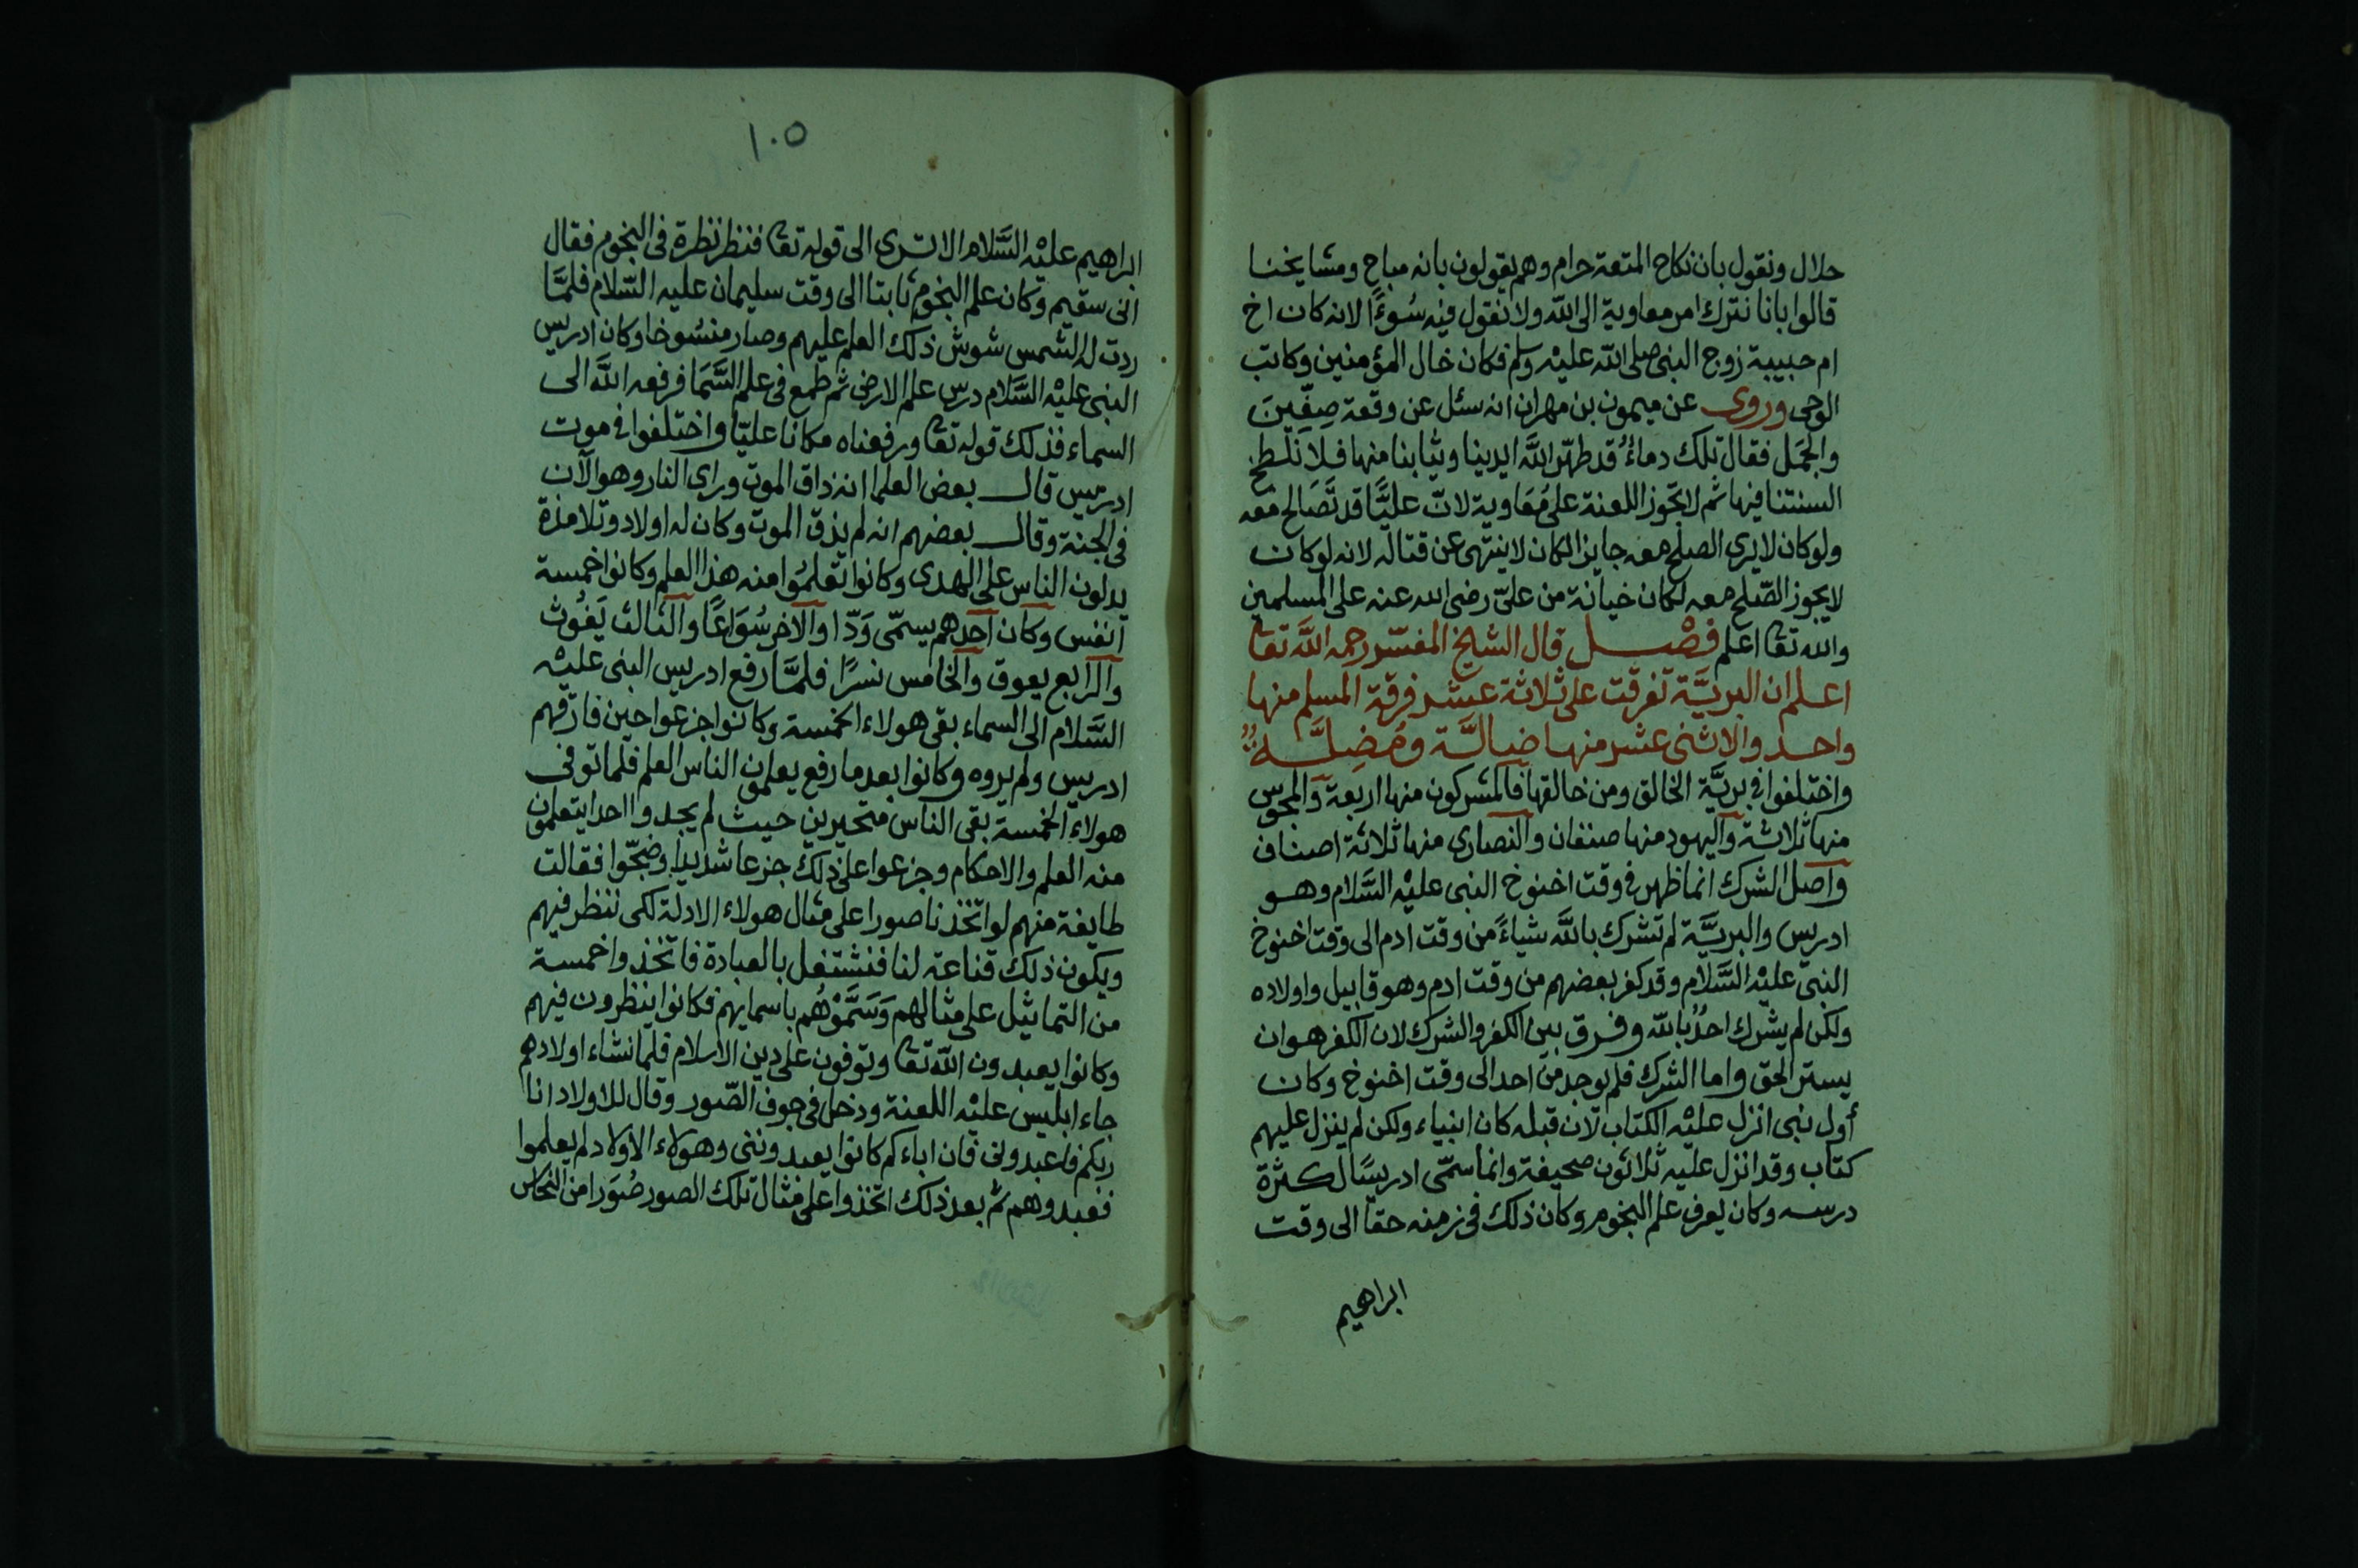 حلال ونقول بان نكاح المتعة حرام وهم يقولون بانه مباح ومشايخنا
قالوا بانا نترك امر معاوية الى الله ولا نقول فيه سُوءًا لانه كان اخ
ام حبيبة زوج النبى صلى الله عليه وسلم فكان خال المؤمنين وكاتب
الوحى وروى عن ميمون بن مهران انه سئل عن وقعة صِفّينَ
والجَمَل فقال تلك دماءٌ قد طهّر الله ايدينا وثيابنا منها فلا نلطخ
السنتنا فيها ثم لا تجوز اللعنة على مُعَاوية لانّ عليًّا قد تَصَالح معه
ولو كان لا يرى الصلح معه جايزا لكان لا ينتهى عن قتاله لانه لو كان
لا يجوز الصّلح معه لكان خيانة من علىّ رضى الله عنه على المسلمين
والله تعا اعلم فصْل قال الشيخ المفسّر رحمه الله تعا
اعلم ان البريَّة تفرقت على ثلاثة عشر فرقة المسلم منها
واحد والاثنى عشر منها ضالَّة ومُضِلَّة
واختلفوا فى بريَّة الخالق ومن خالقها فالمشركون منها اربعة والمجوس
منها ثلاثة واليهود منها صنفان والنصارى منها ثلاثة اصناف
واصل الشرك انما ظهر فى وقت اخنوخ النبى عليْه السَّلام وهو
ادريس والبريَّة لم تشرك بالله شياءً من وقت ادم الى وقت اخنوخ
النبىّ عليْه السَّلام وقد كفر بعضهم من وقت ادم وهو قابيل واولاده
ولكن لم يشرك احدٌ بالله وفرق بين الكفر والشرك لان الكفر هو ان
يستر الحق واما الشرك فلم يوجد من احد الى وقت اخنوخ وكان
أول نبى انزل عليْه الكتاب لان قبله كان انبياء ولكن لم ينزل عليهم
كتاب وقد انزل عليه ثلاثون صحيفة وانما سمّى ادريسًا لكثرة
درسه وكان يعرف علم النجوم وكان ذلك فى زمنه حقا الى وقت
ابراهيم
١٠٥
ابراهيم عليْه السَّلام الا ترى الى قوله تعا فنظر نظرة فى النجوم فقال
انى سقيم وكان علم النجوم ثابتا الى وقت سليمان عليه السّلام فلمَّا
ردت له الشمس شوش ذلك العلم عليهم وصار منسُوخا وكان ادريس
النبى عليْه السَّلام درس علم الارض ثم طمع فى علم السَّمَا فرفعه الله الى
السماء فذلك قوله تعا ورفعناه مكانا عليّا واختلفوا فى موت
ادريس قال بعض العلما انه ذاق الموت وراى النار وهو الآن
فى الجنة وقال بعضهم انه لم يذق الموت وكان له اولاد وتلامذة
يدلون الناس على الهدى وكانوا تعلمُوا منه هذا العلم وكانوا خمسة
انفس وكان احدهم يسمّى وَدّا والآخر سُوَاعًا والثالث يَغُوث
والرابع يعوق والخامس نسرًا فلمَّا رفع ادريس النبى عليْه
السَّلام الى السماء بقى هولاء الخمسة وكانوا جزعوا حين فارقهم
ادريس ولم يروه وكانوا بعد ما رفع يعلمون الناس العلم فلما توفى
هولاء الخمسة بقى الناس متحيرين حيث لم يجدوا احدا يتعلمون
منه العلم والاحكام وجزعوا على ذلك جزعا شديدا وضجّوا فقالت
طايفة منهم لو اتخذنا صورا على مثال هولاء الادلة لكى ننظر فيهم
ويكون ذلك قناعة لنا فنشتغل بالعبادة فاتخذوا خمسة
من التماثيل على مثالهم وَسَمَّوْهُم باسمايهم فكانوا ينظرون فيهم
وكانوا يعبدون الله تعا وتوفون على دين الاسلام فلما نشاء اولادهم
جاء ابليس عليْه اللعنة ودخل فى جوف الصّور وقال للاولاد انا
ربكم فاعبدونى فان اباءكم كانوا يعبدوننى وهولاء الاولاد لم يعلموا
فعبدوهم ثم بعد ذلك اتخذوا على مثال تلك الصور صُوَرا من النحاس